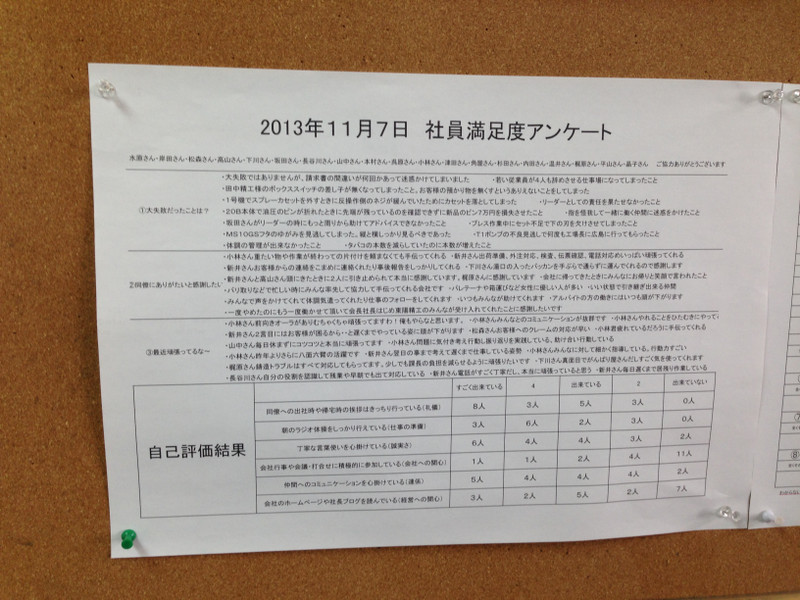 2013年11月7日　社員満足度アンケート
水源さん・岸田さん・松森さん・高山さん・下川さん・坂田さん・長谷川さん・山中さん・本村さん・長原さん・小林さん・津田さん・角屋さん・杉田さん・内田さん・温井さん・梶原さん・平山さん・晶子さん　ご協力ありがとうございます
①大失敗だったことは?
・大失敗ではありませんが、請求書の間違いが何回かあって迷惑かけてしまいました　・若い従業員が4人も辞めさせる仕事場になってしまったこと
・田中精工様のボックススイッチの差し子が無くなってしまったこと、お客様の預かり物を無くすというありえないことをしてしまった
・1号機でスプレーカセットを外すときに反操作側のネジが緩んでいたためにカセットを落としてしまった　・リーダーとしての責任を果せなかったこと
・20B本体で油圧のピンが折れたときに先端が残っているのを確認できずに新品のピン7万円を損失させたこと　・指を怪我して一緒に働く仲間に迷惑をかけたこと
・坂田さんがリーダーの時にもっと周りから助けてアドバイスできなかったこと　・プレス作業中にセット不足で下の刃を欠けさせてしまったこと
・MS10GSフタのゆがみを見逃してしまった。縦と横しっかり見るべきであった　・T1ポンプの不良見逃しで何度も工場長に広島に行ってもらったこと
・体調の管理が出来なかったこと　・タバコの本数を減らしていたのに本数が増えたこと
2同僚にありがたいと感謝したい
・小林さん重たい物や作業が終わっての片付けを頼まなくても手伝ってくれる　・新井さん出荷準備、外注対応、検査、伝票確認、電話対応めいっぱい頑張ってくれる
・新井さんお客様からの連絡をこまめに連絡くれたり事後報告をしっかりしてくれる　・下川さん湯口の入ったパッカンを手ぶらで遭らずに運んでくれるので感謝します
・新井さんと高山さん頭にきたときに2人に引き止められて本当に感謝しています。梶原さんに感謝しています　・会社に帰ってきたときにみんなにお帰りと笑顔で言われたこと
・バリ取りなどで忙しい時にみんな率先して協力して手伝ってくれる会社です　・バレテーナや箱運びなど女性に優しい人が多い　・いい状態で引き継ぎ出来る仲間
・みんなで声をかけてくれて体調気遣ってくれたり仕事のフォローをしてくれます　・いつもみんなが助けてくれます　・アルバイトの方の働きにはいつも頭が下がります
・一度やめたのにもう一度働かせて頂いて会長社長はじめ東陽精工のみんなが受け入れてくれたことに感謝したいです
③最近頑張ってるな～
・小林さん前向きオーラがありむちゃくちゃ頑張ってますわ!俺もやらなと思います。　・小林さんみんなとのコミュニケーションが抜群です　・小林さんやれることをひたむきにやってい
・新井さん2言目にはお客様が困るから・・と遅くまでやっている姿に頭が下がります　・松森さんお客様へのクレームの対応が早い　・小林君疲れているだろうに手伝ってくれる
・山中さん毎日休まずにコツコツと本当に頑張ってます　・小林さん問題に気付き考え行動し振り返りを実践している、助け合い行動している
・小林さん昨年よりさらに八面六臂の活躍です　・新井さん翌日の事まで考えて遅くまで仕事している姿勢　・小林さんみんなに対して細かく指導している。行動力すごい
・梶原さん鋳造トラブルはすべて対応してもらってます。少しでも課長の負担を減らせるように頑張りたいです　・下川さん真面目でがんばり屋さんだしすごく気を使ってくれます
・長谷川さん自分の役割を認識して残業や早朝でも出て対応している　・新井さん電話がすごく丁寧だし、本当に頑張っていると思う　・新井さん毎日遅くまで居残り作業している
自己評価結果
すごく出来ている　4　出来ている　2　出来ていない
同僚への出社時や帰宅時の挨拶はきっちり行っている(礼儀)　8人　3人　5人　3人　0人
朝のラジオ体操をしっかり行えている(仕事の準備)　3人　6人　2人　3人　0人
丁寧な言葉使いを心掛けている(誠実さ)　6人　4人　4人　3人　2人
会社行事や会議・打合せに積極的に参加している(会社への関心)　1人　1人　2人　4人　11人
仲間へのコミュニケーションを心掛けている(連係)　5人　4人　4人　4人　2人
会社のホームページや社長ブログを読んでいる(経営への関心)　3人　2人　5人　2人　7人